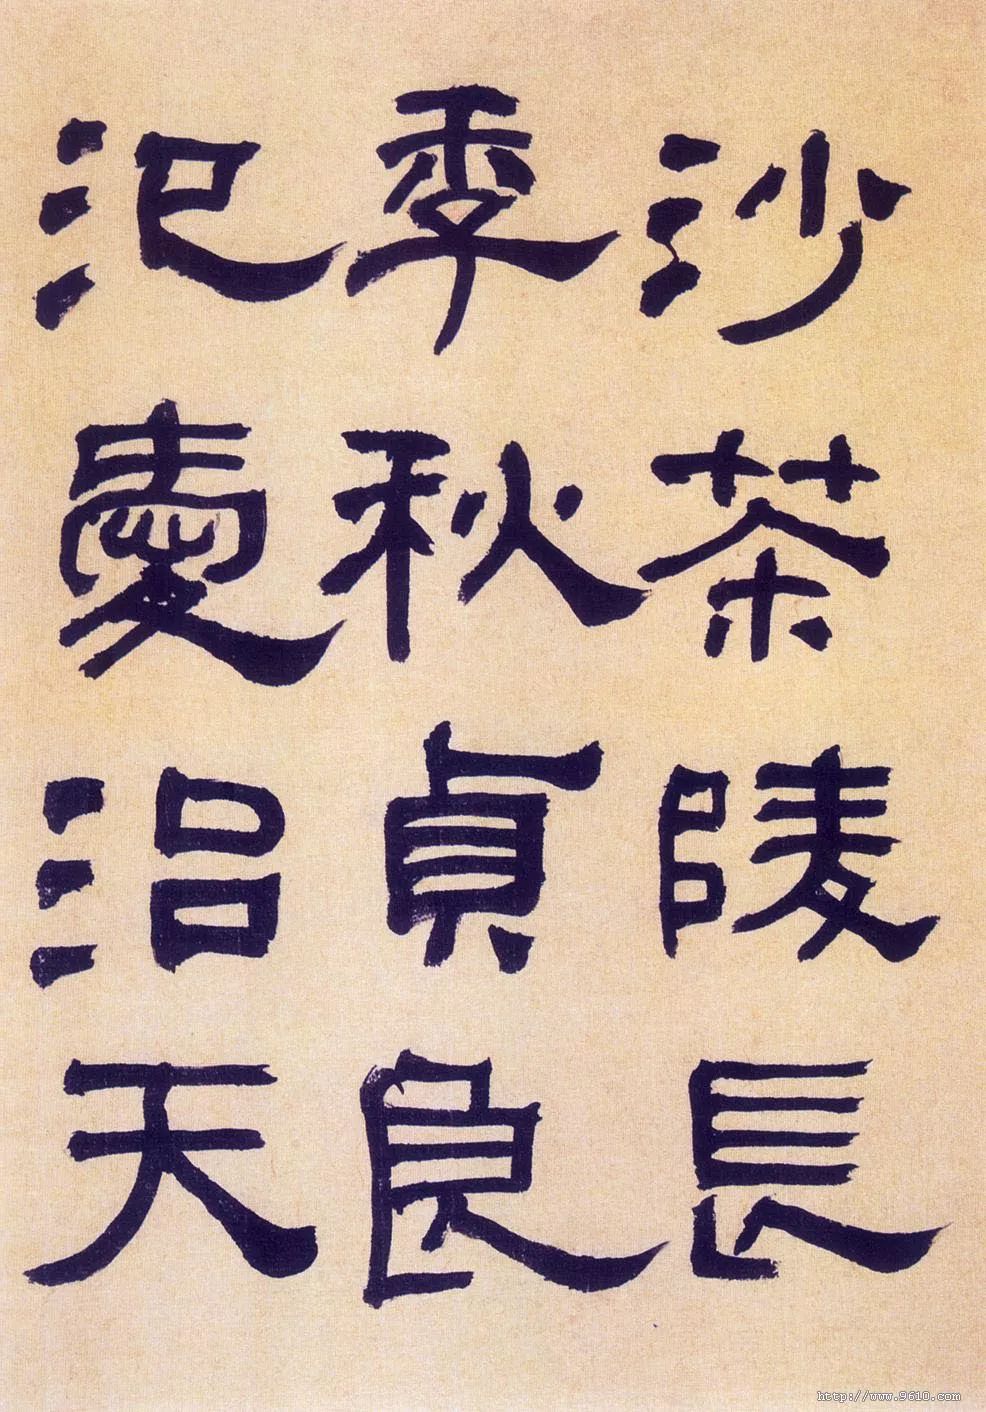 沙茶陵長
季秋貞良
汜愛治天
http://www.9610.com